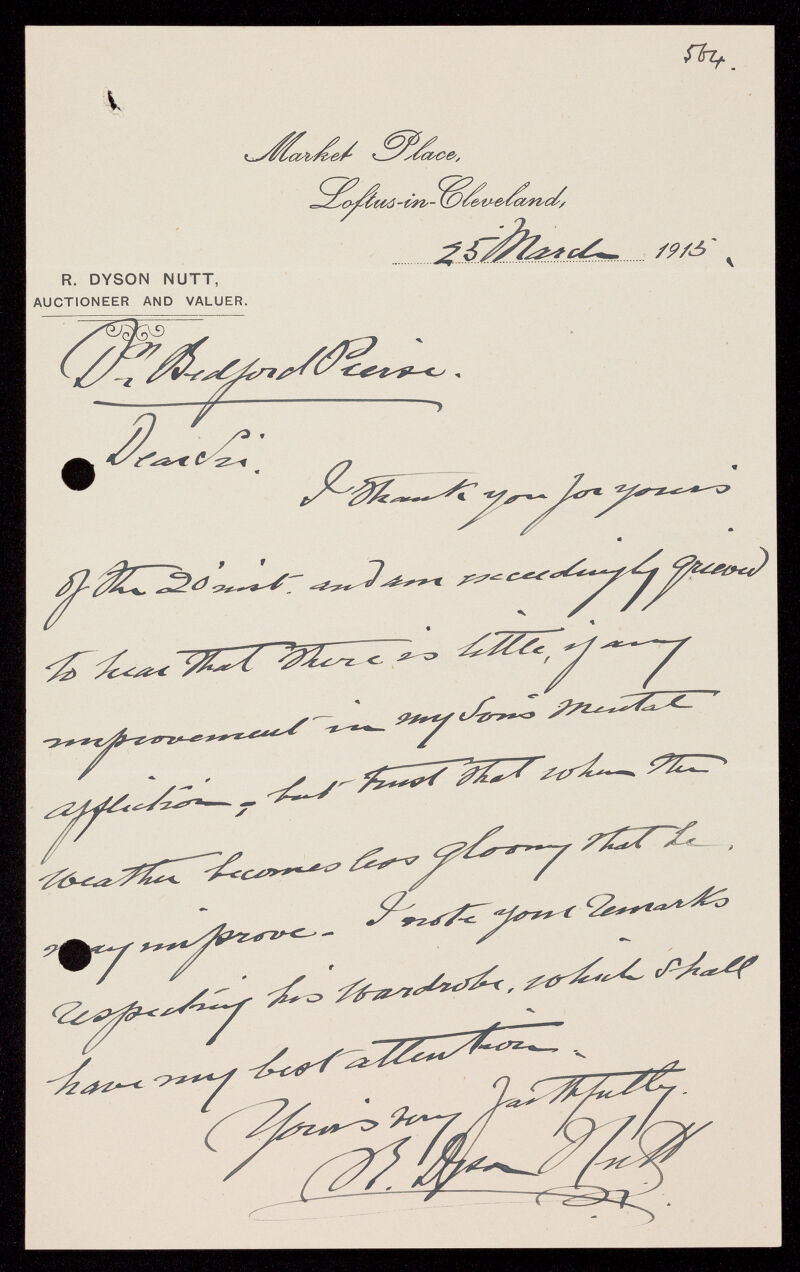 564.
Market Place,
Loftus-in-Cleveland,
25 March 1915.
R. DYSON NUTT,
AUCTIONEER AND VALUER.
Dr Bedford Pierse.
Dear Sir.
I thank you for yours
of the 20 inst. and am exceedingly grieved
to hear that there is little, if any
improvement in my Sons mental
affliction, but trust that when the
weather becomes less gloomy that he
may improve - I note your remarks
respecting his wardrobe, which shall
have my best attention.
Yours very faithfully.
R. Dyson Nutt